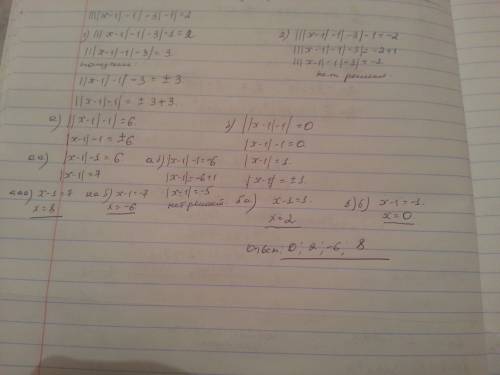 ||||x-1|-1|-3|-1|=2
1) |||x-1|-1|-3|-1=2
|||x-1|-1|-3|=3
получим
||x-1|-1|-3=±3
||x-1|-1|=±3+3.
2) |||x-1|-1|-3|-1=-2
|||x-1|-1|-3|=-2+1
|||x-1|-1|-3|=-1
нет решений
а) ||x-1|-1|=6.
|x-1|-1=±6
аа) |x-1|-1=6
|x-1|=7
ааа) x-1=7
x=8
ааб) x-1=-7
x=-6
аб) |x-1|-1=-6
|x-1|=-6+1
|x-1|=-5
нет решений
б) ||x-1|-1|=0
|x-1|-1=0
|x-1|=1.
|x-1|=±1.
ба) x-1=1.
x=2
бб) x-1=-1.
x=0
Ответ: 0; 2; -6; 8